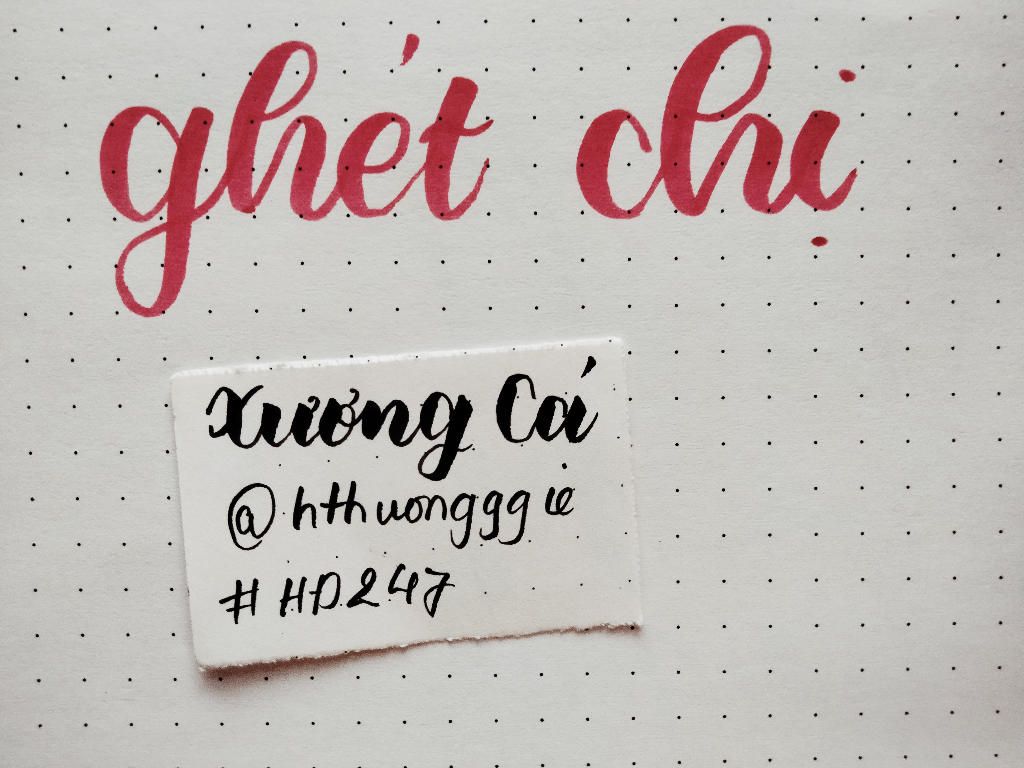 ghét chị
Xương Cá
@hthuongggie
#HD247